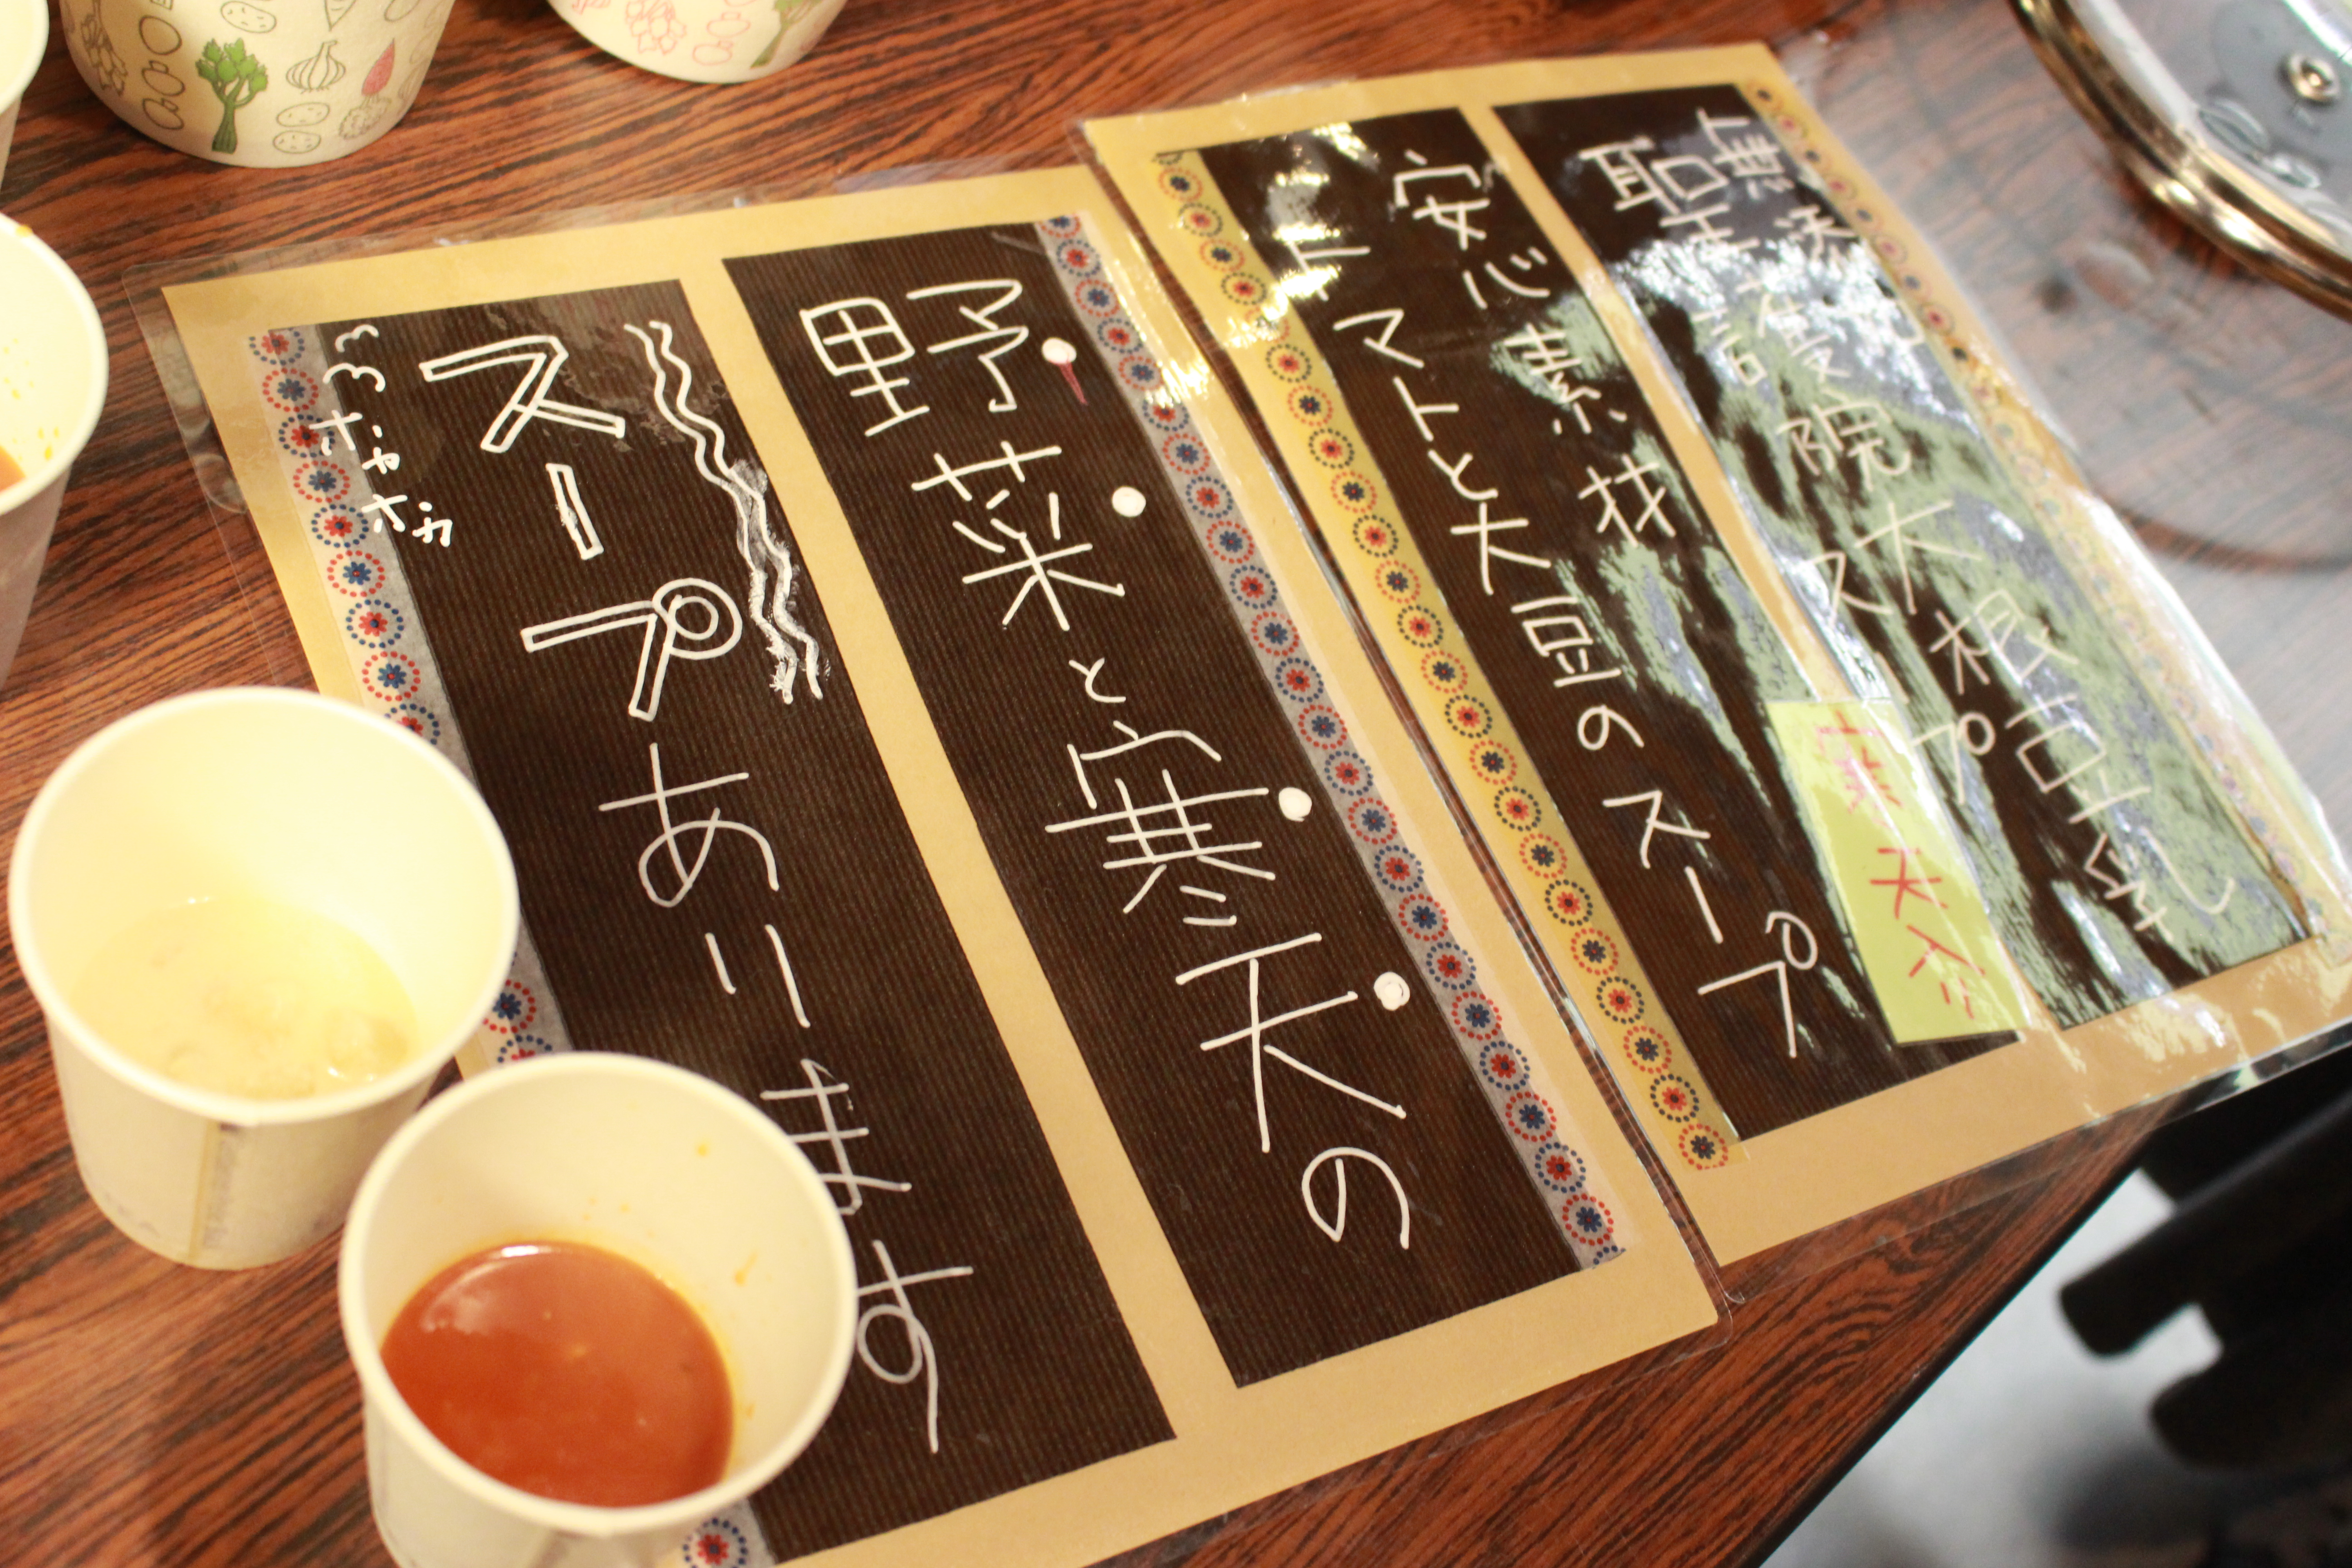 無添加
聖護院大根豆乳
スープ
寒天入り
安心素材
トマトと大豆のスープ
野菜と寒天の
スープあります
ほかほか